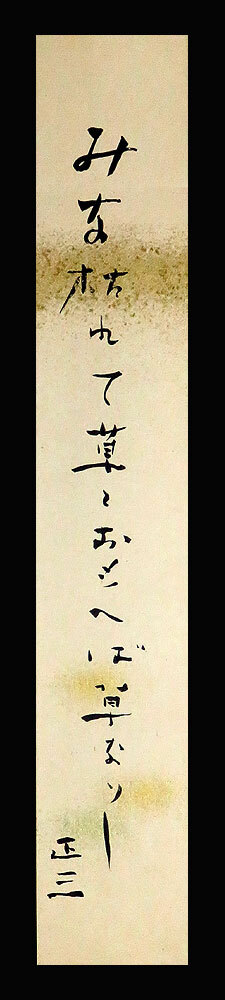 みな枯れて草とおもへば草なりし
正三